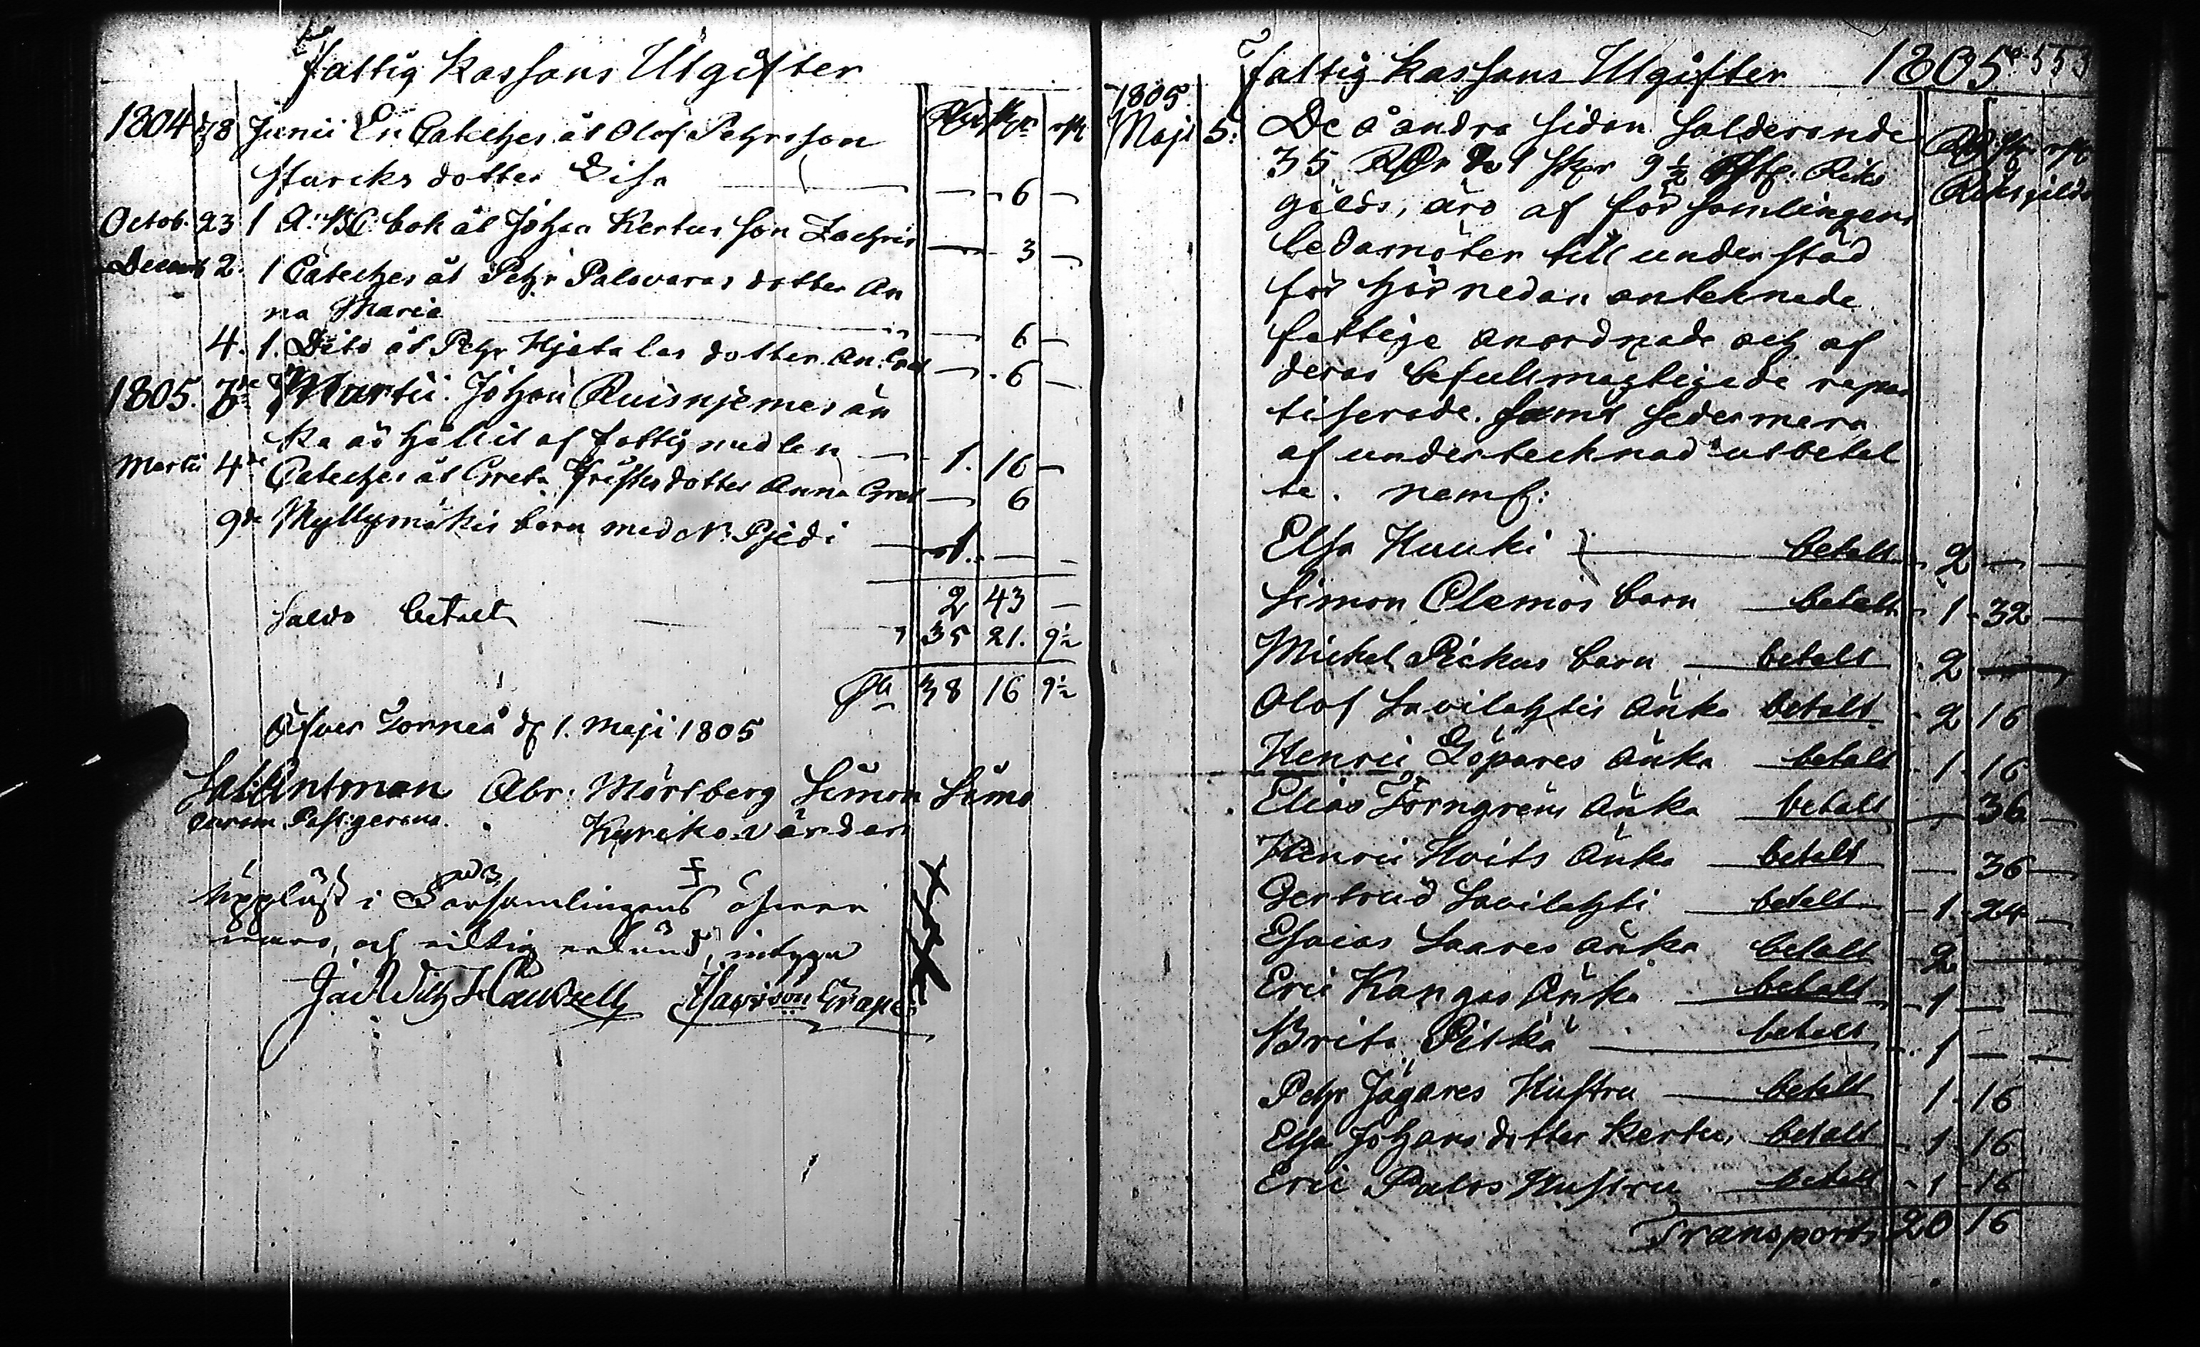 Fattig Kassans Utgifter
1804 d 8 Junii En Cateches åt Olof Pehrsson
Starcks dotter Lisa - 6 -
Octob. 23 1 A.B.C. bok åt Johan Kertus son Zachris - 3 -
Decemb 2. 1 Cateches åt Pehr Palovaras dotter An
na Maria - 6 -
4. 1. Dito åt Pehr Hjetalas dotter An: Gret - 6 -
1805. Martii. Johan Ruisnjemes än
ka än hjelt af fattig medlen 1. 16 -
Martii 4de Cateches åt Greta dotter Anna Gret - 6
9de Myllymäkis barn med N: Pjedi 1. - -
2 43 -
Saldo betalt 35 21. 9½
38 16 9½
Öfver Torneå d 1. Maji 1805
Antman Abr: Mörtberg Simon Simo
Kyrkovärdar
Uppläst i Församlingens öfverva
ro, och riktig erkänd, intyga
Grape
Fattig Kassans Utgifter 1805 553
1805
Maji 5. De å andra sidan Salderande
35 Rdr 21 sk 9½ rst. Riks
gälds, äro af församlingens
ledamöter till understöd
för här nedan anteknade
fattige anordnade och af
deras befullmägtigade repar
tiserade. samt sedermera
af undertecknad utbetal
te. nemf:
Riksgälds
Elsa Hauki betalt 2 - -
Simon Clemos barn betalt 1 - 32 -
Michel Piekus barn betalt 2 -
Olof Savilahtis änka betalt 2 16
Henric Göpares änka betalt 1 - 16
Elias Törngrens änka betalt - 36 -
Henric Hoits änka betalt - 36 -
Gertrud Savilahti betalt 1 - 24 -
Esaias Saares änka betalt 2 -
Eric Kangas änka betalt 1 -
Brita Pitkä betalt 1 - -
Pehr Jägares Hustru betalt 1 - 16
Elsa Johans dotter Kertu betalt 1 - 16
Eric Palos Hustru betalt 1 - 16
Transport 20 16